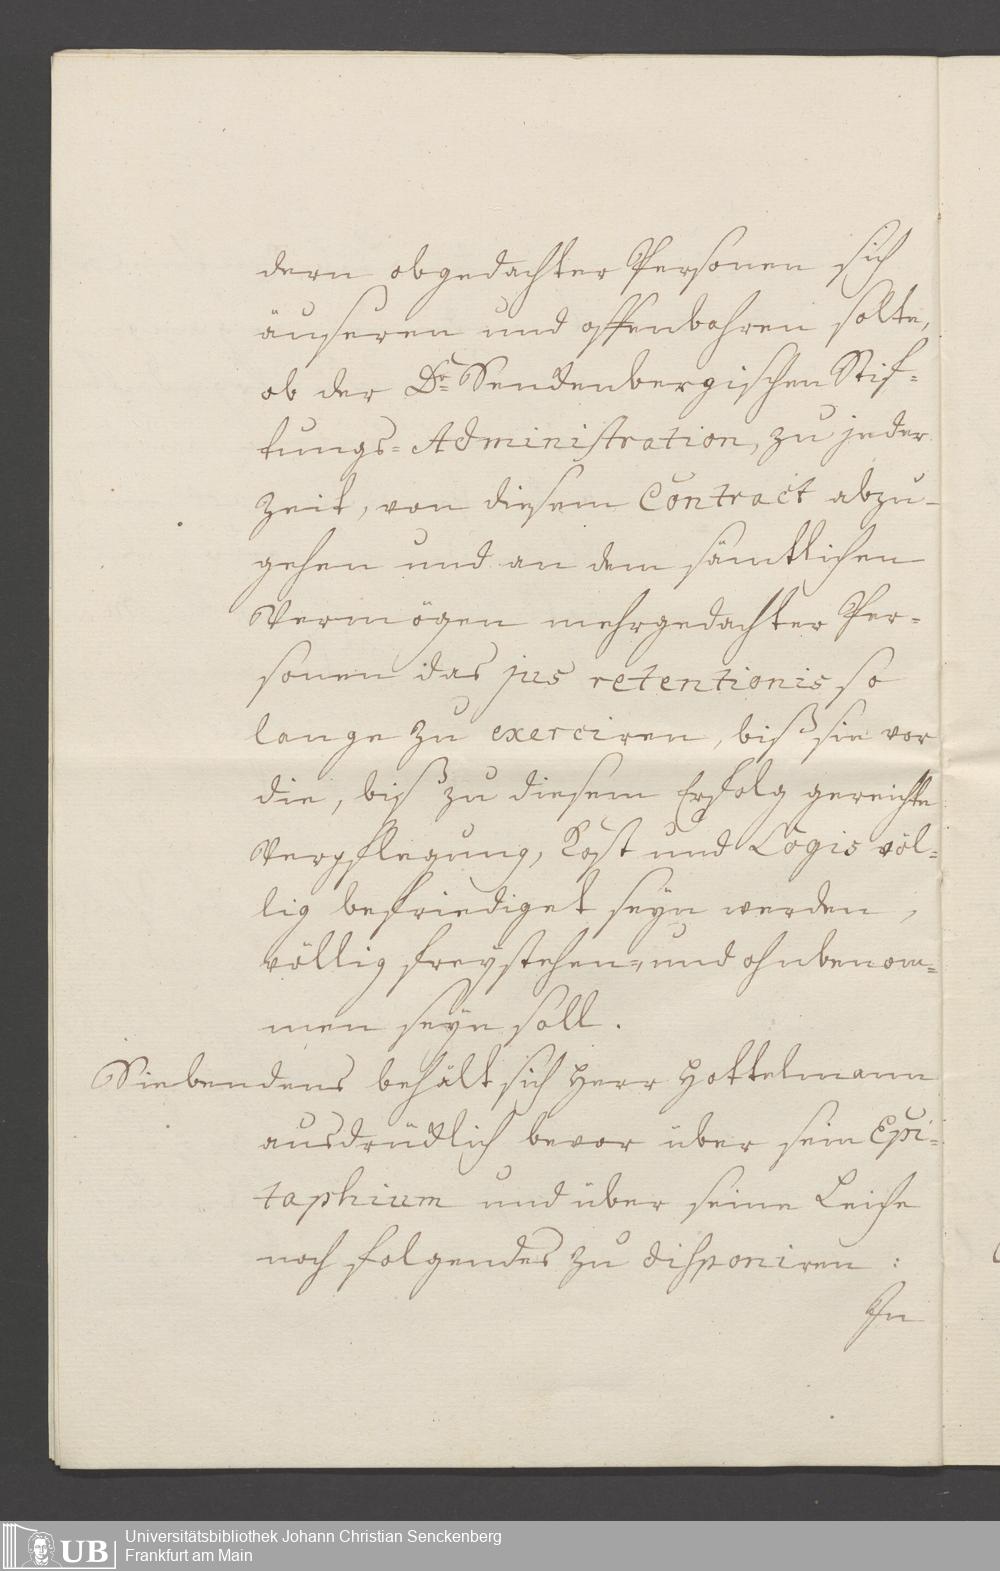 dern obgedachter Personen sich
äuseren und offenbahren solte,
ob der Dr Senckenbergischen Stif=
tungs=Administration, zu jeder
Zeit, von diesem Contract abzu-
gehen und an dem sämtlichen
Vermögen mehrgedachter Per=
sonen das jus retentionis so
lange zu exerciren, biß sie vor
die, biß zu diesem Erfolg gereichte
Verpflegung, Kost und Logis völ=
lig befriediget seyn werden,
völlig freystehen=, und ohnbenom=
men seyn soll.
Siebendens behält sich Herr Hottelmann
ausdrücklich bevor über sein Epi=
taphium und über seine Leiche
noch folgendes zu disponiren:
In
UB Universitätsbibliothek Johann Christian Senckenberg
Frankfurt am Main